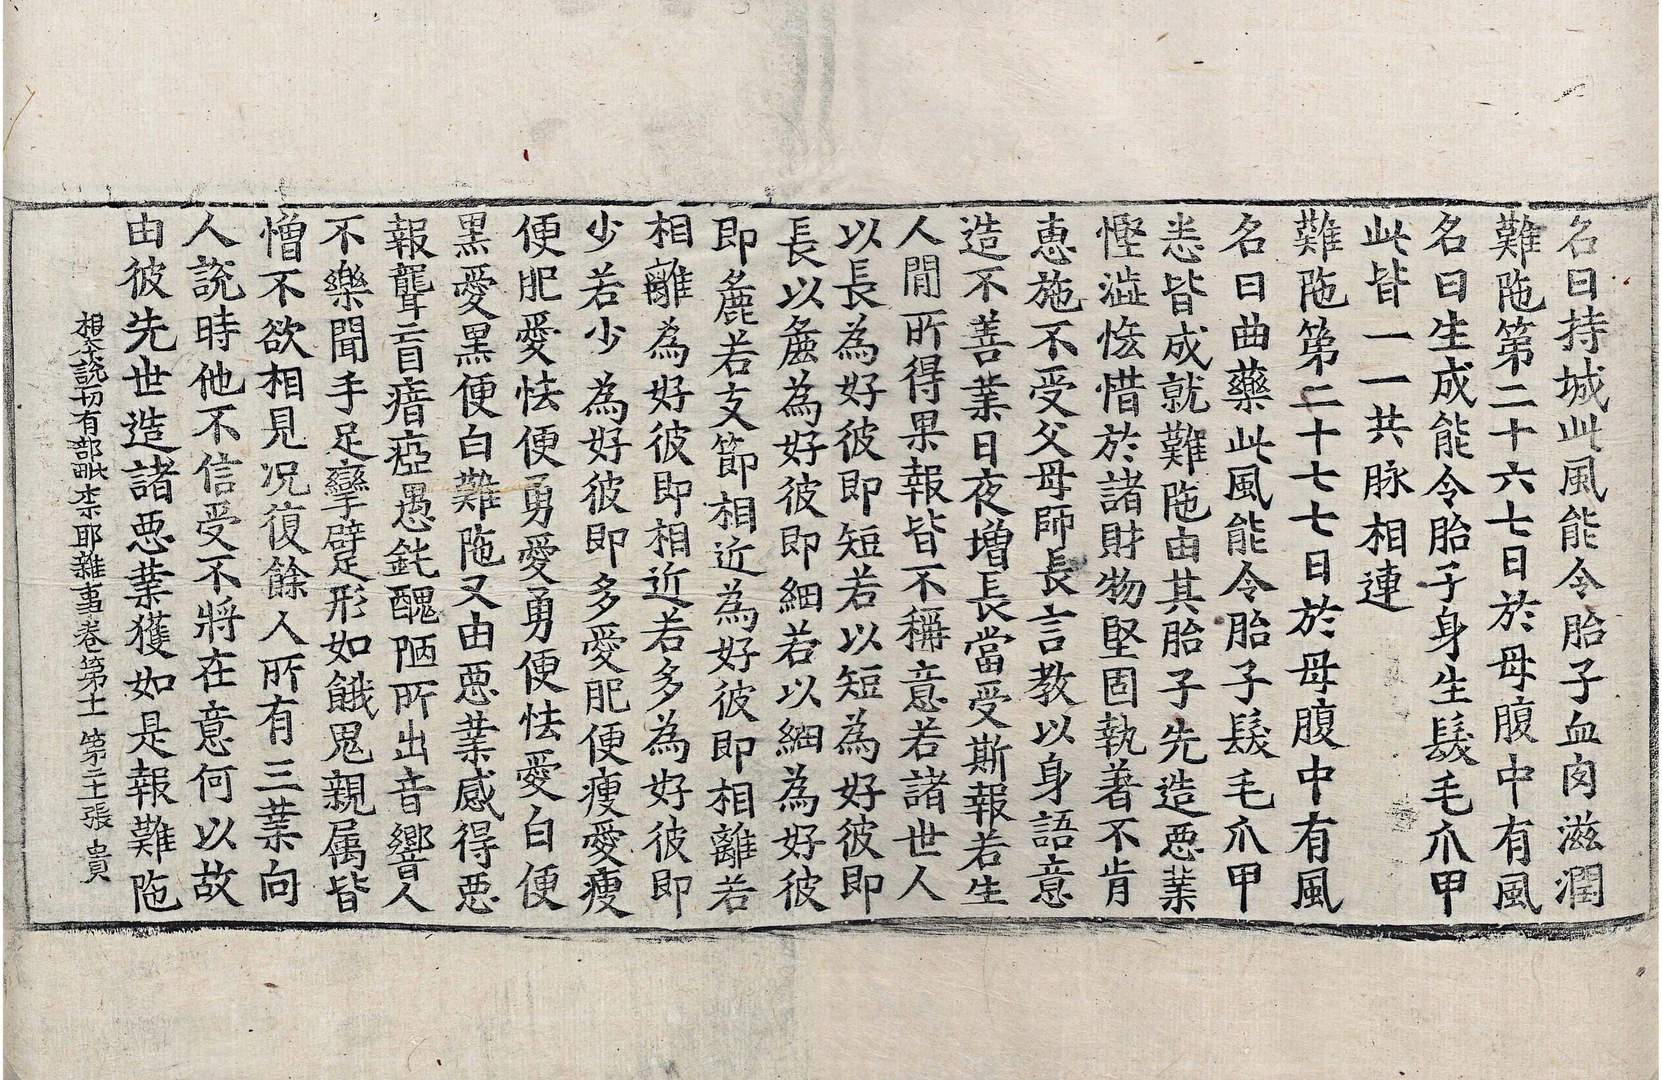 名曰持城此風能令胎子血肉滋潤
難陁第二十六七日於母腹中有風
名曰生成能令胎子身生髮毛爪甲
此皆一一共脉相連
難陁第二十七七日於母腹中有風
名曰曲藥此風能令胎子髮毛爪甲
悉皆成就難陁由其胎子先造惡業
慳澁恡惜於諸財物堅固執著不肯
惠施不受父母師長言教以身語意
造不善業日夜增長當受斯報若生
人間所得果報皆不稱意若諸世人
以長為好彼即短若以短為好彼即
長以麁為好彼即細若以細為好彼
即麁若支節相近為好彼即相離若
相離為好彼即相近若多為好彼即
少若少為好彼即多愛肥便瘦愛瘦
便肥愛怯便勇愛勇便怯愛白便
黑愛黑便白難陁又由惡業感得惡
報聾盲瘖瘂愚鈍醜陋所出音響人
不樂聞手足攣躄形如餓鬼親属皆
憎不欲相見况復餘人所有三業向
人說時他不信受不將在意何以故
由彼先世造諸惡業獲如是報難陁
根本說一切有部毗奈耶雜事卷第十一 第二十張 貴